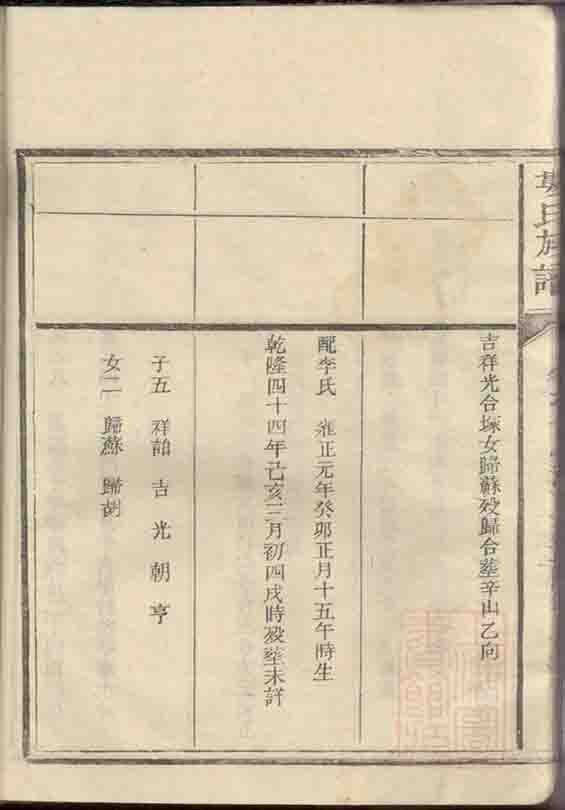 氏族譜
吉祥光合塚女歸蘇歿歸合塟辛山乙向
配李氏　雍正元年癸卯正月十五午時生
乾隆四十四年己亥三月初四戌時歿塟未詳
子五　祥韶　吉　光　朝　亨
女二　歸蘇　歸胡